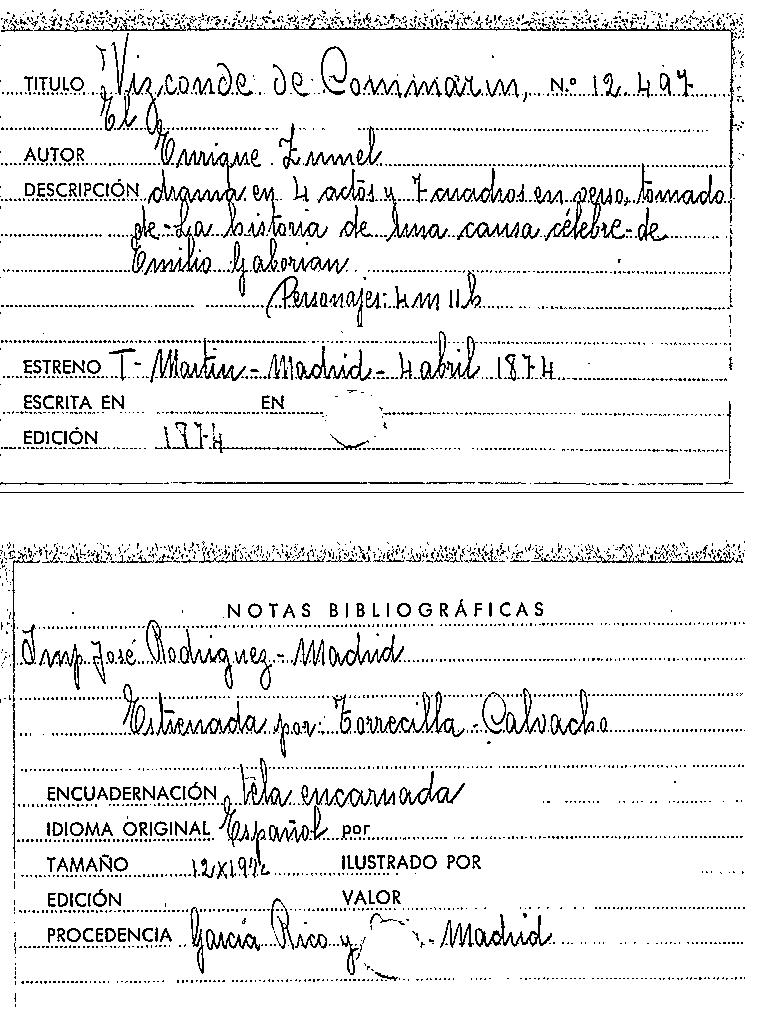 TITULO Vizconde de Commarin, N.º 12.497
El
AUTOR Enrique Zumel
DESCRIPCIÓN drama en 4 actos y 7 cuadros en verso, tomado
de-La historia de una causa célebre-de
Emilio Gaborian
Personajes: 4 m 11 h
ESTRENO T- Martin - Madrid - 4 abril 1874
ESCRITA EN EN
EDICIÓN 1974
NOTAS BIBLIOGRÁFICAS
Imp José Rodriguez - Madrid
Estrenada por: Torrecilla - Calvacho
ENCUADERNACIÓN tela encarnada
IDIOMA ORIGINAL Español por
TAMAÑO ILUSTRADO POR
EDICIÓN VALOR
PROCEDENCIA García Rico y - Madrid